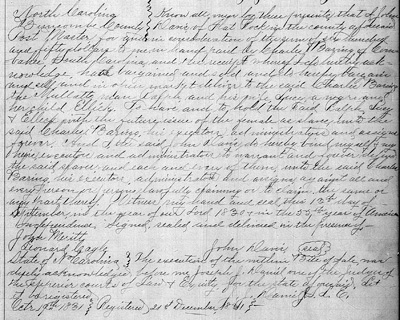 North Carolina } Know all men by these presents that I John
Buncombe County } Davis of Flat Rock in the county aforesaid
Post Master for and in consideration of hundred
and fifty dollars to me in hand paid by Charles Baring of
South Carolina, and the receipt whereof I do hereby ack
nowledge, hath bargained and sold and do hereby bargain
and sell, and in open market deliver to the said Charles Baring
one mulatto and his wife a negro and
her child Elley. To have and to hold the said
& Elley with the future issue of the female as slaves, unto the
said Charles Baring, his executors, administrators and assigns
forever. And I the said John Davis do hereby bind myself my
heirs, executors and administrators to warrant and forever defend
the said slaves and each and every of them, unto the said Charles
Baring his executors administrators and assigns against all and
every person or persons lawfully claiming or to claim the same or
any part thereof. Witness my hand and seal this day of
September in the year of our Lord 183 and in the 55th year of American
Independence. Signed, sealed and delivered in the presence of
John
Leonard Cagle John Davis (seal)
State of N Carolina, } The execution of the within Bill of Sale, was
duly acknowledged, before me Joseph J. Daniel one of the judges of
the superior courts of Law & Equity for the state aforesaid, let
it be registered, J. J. Daniel J. S. C.
Octr 19th 1831 } Registered, 21st December 1841